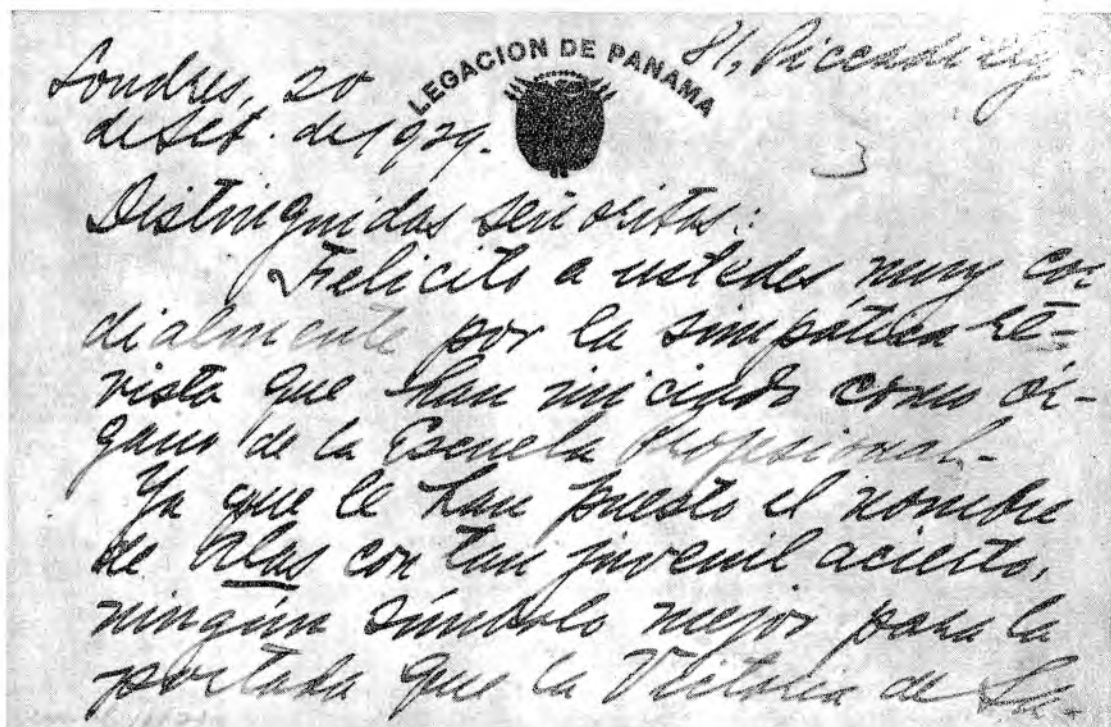 LEGACION DE PANAMA
81, Piccadilly
Londres, 20
de Set. de 1929.
3
Distinguidas señoritas:
Felicito a ustedes muy cor
dialmente por la simpática re-
vista que han iniciado como ór-
gano de la Escuela Profesional.-
Ya que le han puesto el nombre
de Alas con tan juvenil acierto,
ningún símbolo mejor para la
portada que la Victoria de Sa-